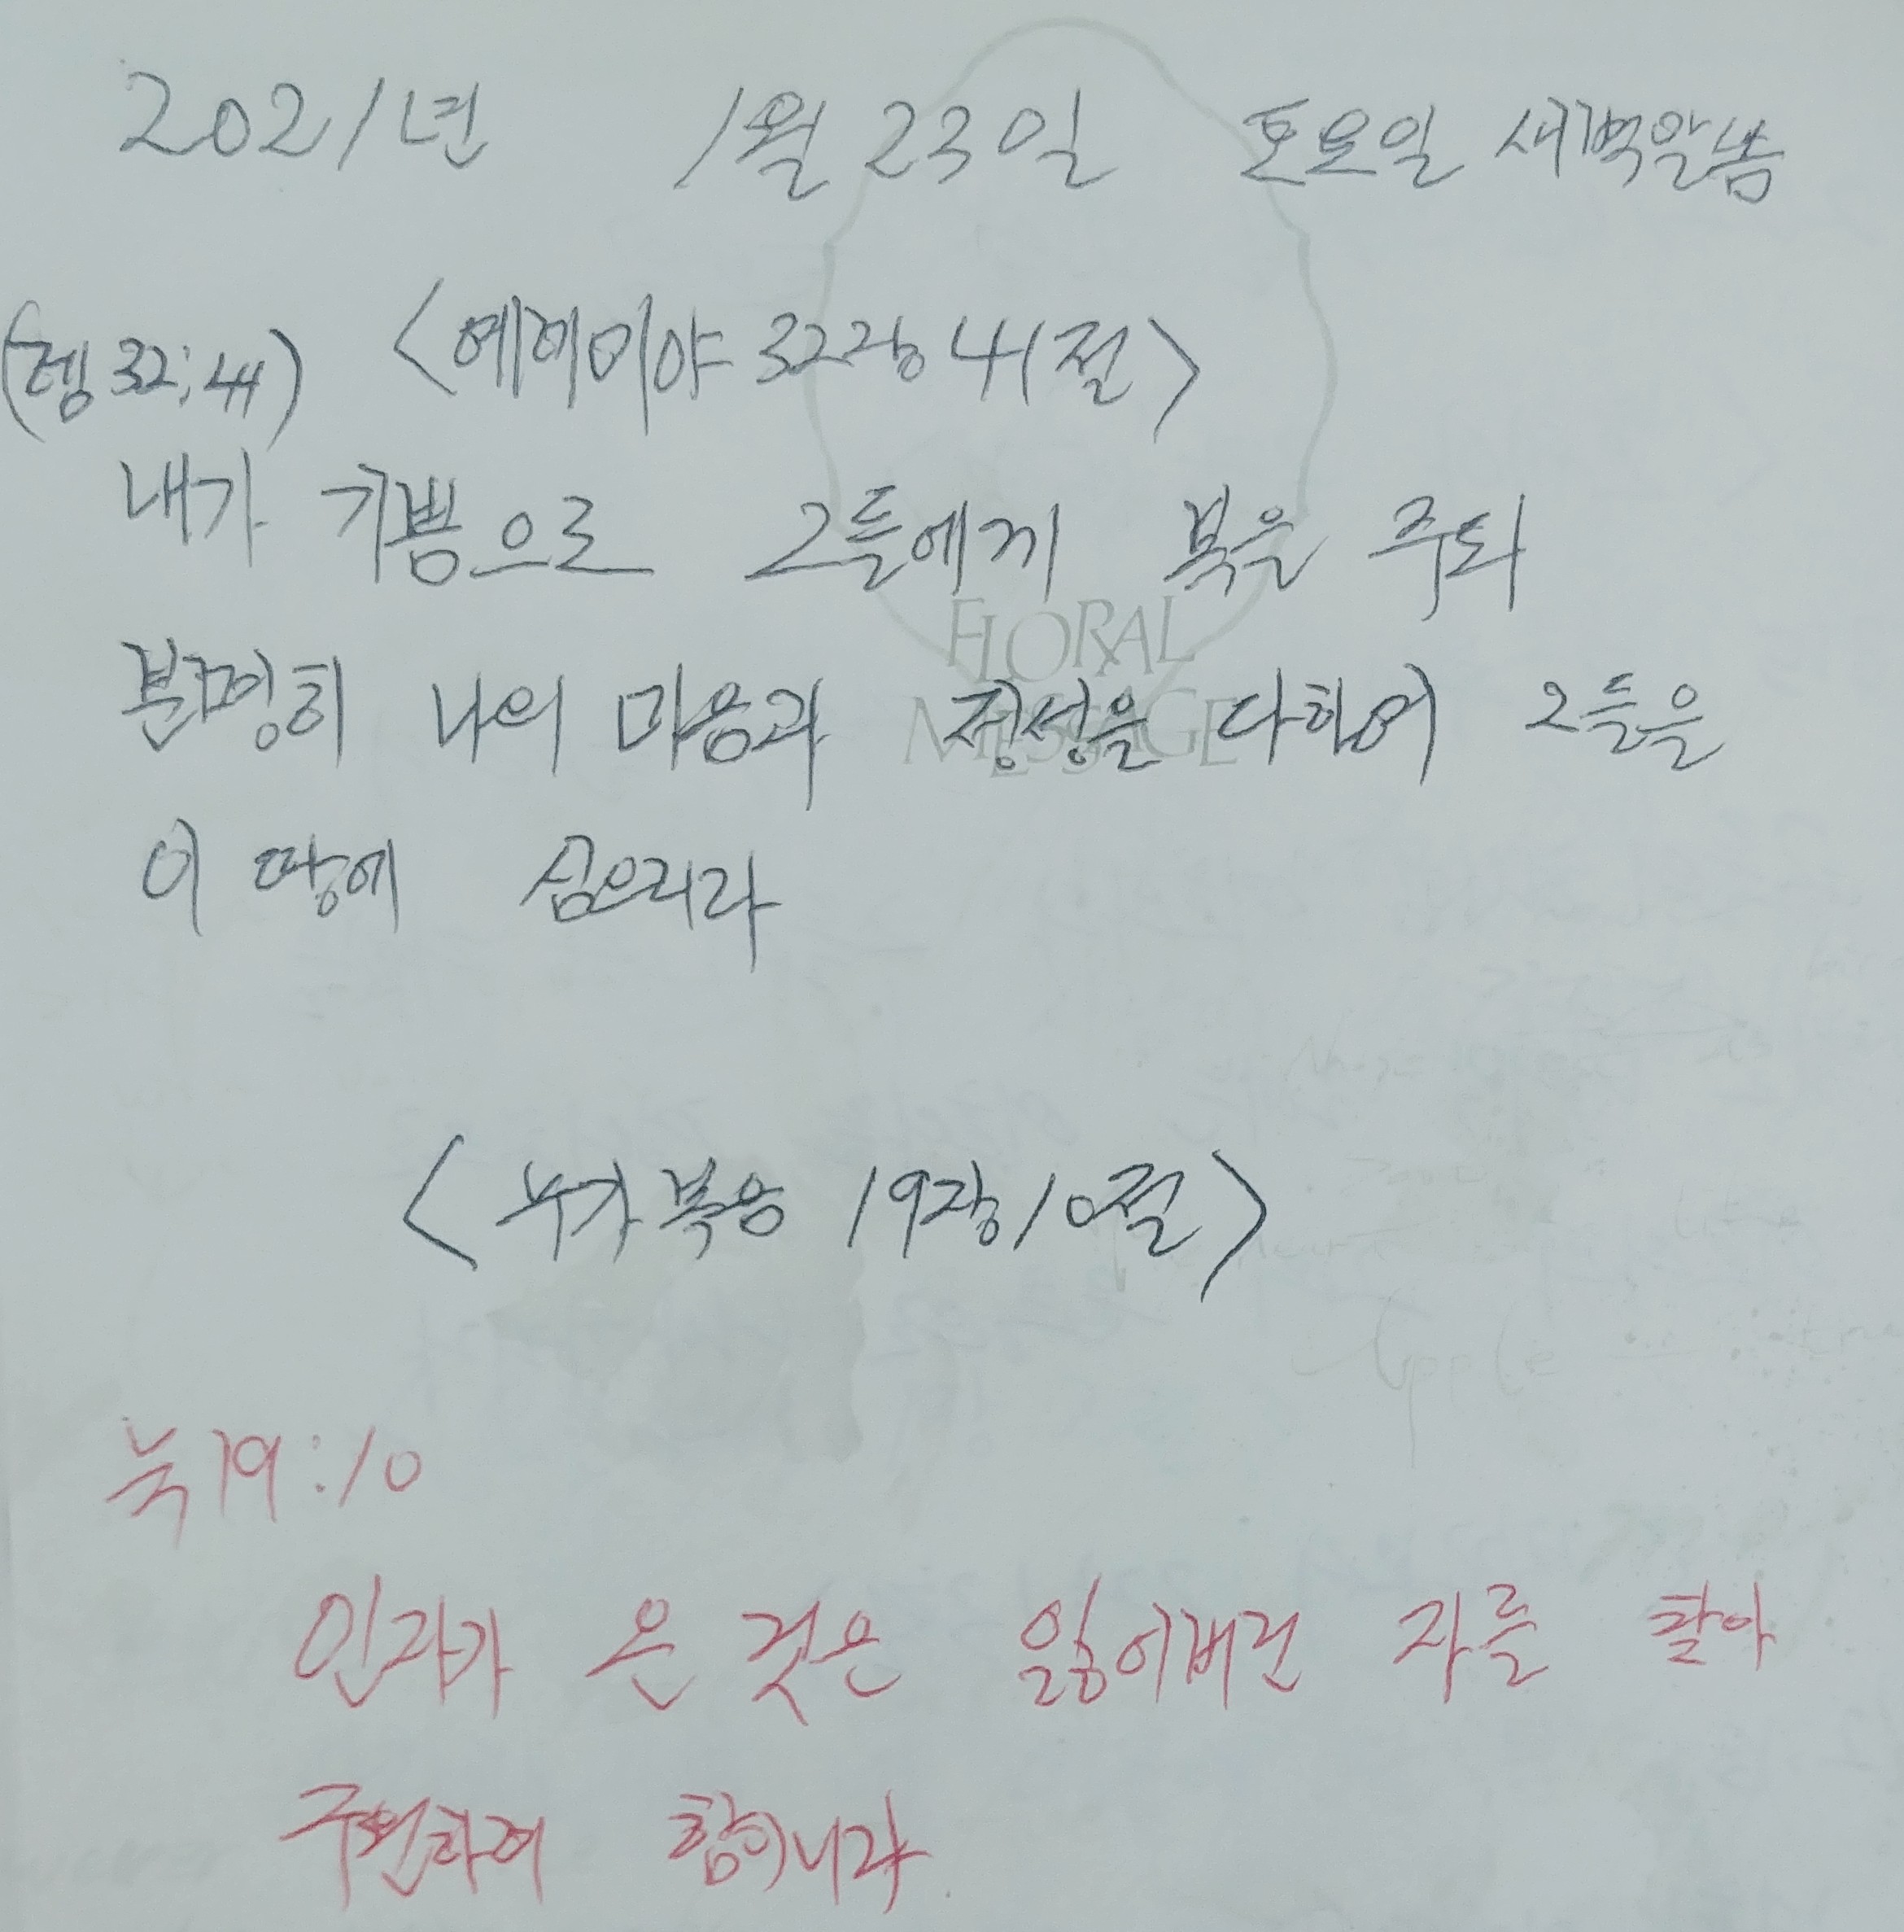 2021년 1월 23일 토요일 새벽말씀
<예레미야 32장 41절>
(렘 32:41)
내가 기쁨으로 그들에게 복을 주되
FLORAL
분명히 나의 마음과 정성을 다하여 그들을
MESSAGE
이 땅에 심으리라
<누가복음 19장 10절>
눅19:10
인자가 온 것은 잃어버린 자를 찾아
구원하려 함이니라